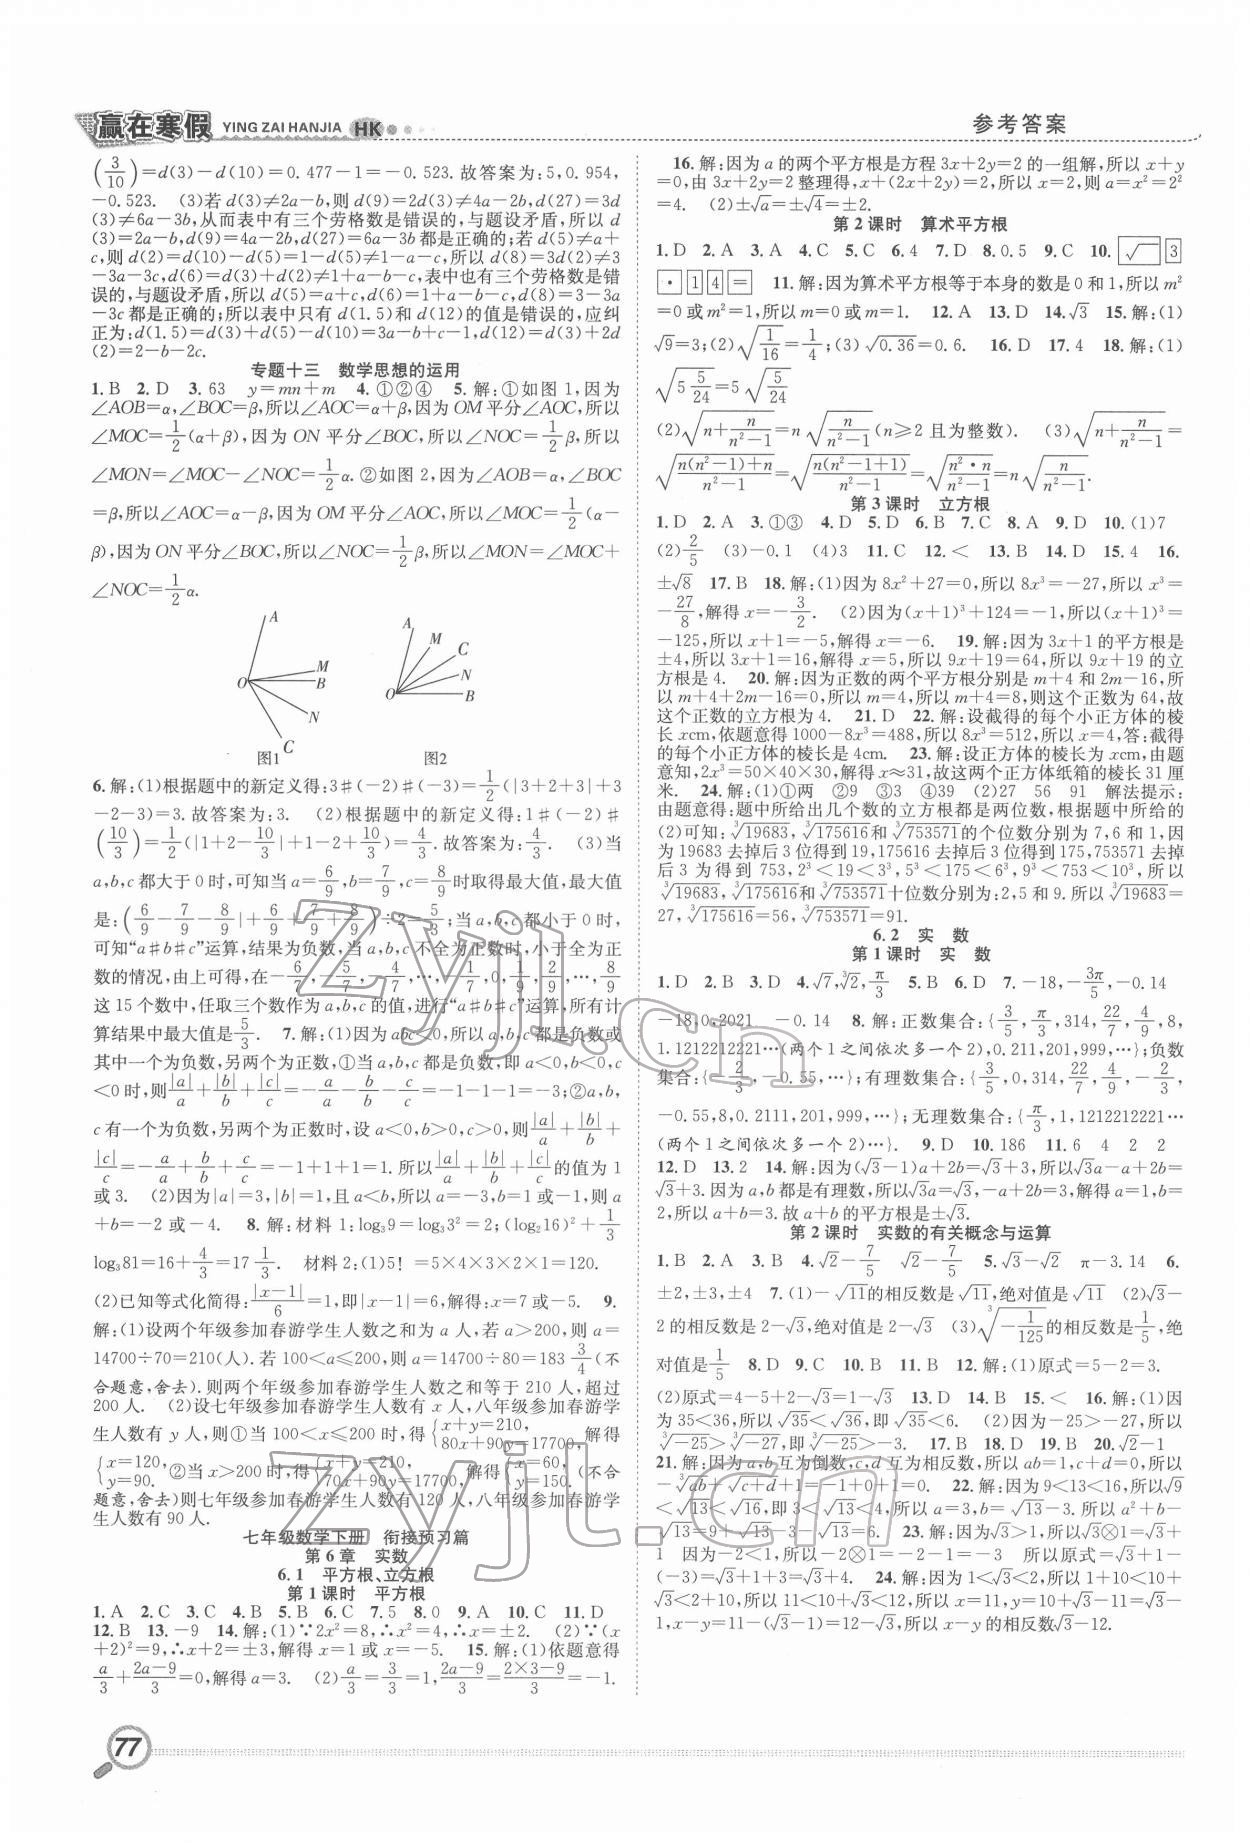 赢在寒假 YING ZAI HANJIA HK
参考答案
(3/10)=d(3)-d(10)=0.477-1=-0.523.故答案为:5,0.954,
-0.523. (3)若d(3)≠2a-b,则d(9)=2d(3)≠4a-2b,d(27)=3d
(3)≠6a-3b,从而表中有三个劳格数是错误的,与题设矛盾,所以d
(3)=2a-b,d(9)=4a-2b,d(27)=6a-3b都是正确的;若d(5)≠a+
c,则d(2)=d(10)-d(5)=1-d(5)≠1-a-c,所以d(8)=3d(2)≠3
-3a-3c,d(6)=d(3)+d(2)≠1+a-b-c,表中也有三个劳格数是错
误的,与题设矛盾,所以d(5)=a+c,d(6)=1+a-b-c,d(8)=3-3a
-3c都是正确的;所以表中只有d(1.5)和d(12)的值是错误的,应纠
正为:d(1.5)=d(3)+d(5)-d(10)=3a-b+c-1,d(12)=d(3)+2d
(2)=2-b-2c.
专题十三 数学思想的运用
1.B 2.D 3.63 y=mn+m 4.①②④ 5.解:①如图1,因为
∠AOB=α,∠BOC=β,所以∠AOC=α+β,因为OM平分∠AOC,所以
∠MOC=1/2(α+β),因为ON平分∠BOC,所以∠NOC=1/2β,所以
∠MON=∠MOC-∠NOC=1/2α.②如图2,因为∠AOB=α,∠BOC
=β,所以∠AOC=α-β,因为OM平分∠AOC,所以∠MOC=1/2(α-
β),因为ON平分∠BOC,所以∠NOC=1/2β,所以∠MON=∠MOC+
∠NOC=1/2α.
A
M
O B
N
C
图1
A
M
C
N
O B
图2
6.解:(1)根据题中的新定义得:3♯(-2)♯(-3)=1/2(|3+2+3|+3
-2-3)=3.故答案为:3. (2)根据题中的新定义得:1♯(-2)♯
(10/3)=1/2(|1+2-10/3|+1-2+10/3)=4/3.故答案为:4/3. (3)当
a,b,c都大于0时,可知当a=6/9,b=7/9,c=8/9时取得最大值,最大值
是:(|6/9-7/9-8/9|+6/9+7/9+8/9)÷2=5/3;当a,b,c都小于0时,
可知“a♯b♯c”运算,结果为负数,当a,b,c不全为正数时,小于全为正
数的情况,由上可得,在-6/7,-5/7,-4/7,…,-1/7,0,1/9,2/9,…,8/9
这15个数中,任取三个数作为a,b,c的值,进行“a♯b♯c”运算,所有计
算结果中最大值是5/3. 7.解:(1)因为abc<0,所以a,b,c都是负数或
其中一个为负数,另两个为正数,①当a,b,c都是负数,即a<0,b<0,c
<0时,则|a|/a+|b|/b+|c|/c=-a/a-b/b-c/c=-1-1-1=-3;②a,b,
c有一个为负数,另两个为正数时,设a<0,b>0,c>0,则|a|/a+|b|/b+
|c|/c=-a/a+b/b+c/c=-1+1+1=1.所以|a|/a+|b|/b+|c|/c的值为1
或3. (2)因为|a|=3,|b|=1,且a<b,所以a=-3,b=1或-1,则a
+b=-2或-4. 8.解:材料1:log₃9=log₃3²=2;(log₂16)²+1/3
log₃81=16+4/3=17 1/3. 材料2:(1)5!=5×4×3×2×1=120.
(2)已知等式化简得:|x-1|/6=1,即|x-1|=6,解得:x=7或-5. 9.
解:(1)设两个年级参加春游学生人数之和为a人,若a>200,则a=
14700÷70=210(人).若100<a≤200,则a=14700÷80=183 3/4(不
合题意,舍去).则两个年级参加春游学生人数之和等于210人,超过
200人. (2)设七年级参加春游学生人数有x人,八年级参加春游学
生人数有y人,则①当100<x≤200时,得{x+y=210, 80x+90y=17700,解得
{x=120, y=90.②当x>200时,得{x+y=210, 70x+90y=17700,解得{x=60, y=150.(不合
题意,舍去)则七年级参加春游学生人数有120人,八年级参加春游学
生人数有90人.
七年级数学下册 衔接预习篇
第6章 实数
6.1 平方根、立方根
第1课时 平方根
1.A 2.C 3.C 4.B 5.B 6.C 7.5 8.0 9.A 10.C 11.D
12.B 13.-9 14.解:(1)∵2x²=8,∴x²=4,∴x=±2. (2)∵(x
+2)²=9,∴x+2=±3,解得x=1或x=-5. 15.解:(1)依题意得
a/3+2a-9/3=0,解得a=3. (2)a/3=3/3=1,2a-9/3=2×3-9/3=-1.
16.解:因为a的两个平方根是方程3x+2y=2的一组解,所以x+y
=0,由3x+2y=2整理得,x+(2x+2y)=2,所以x=2,则a=x²=2²
=4. (2)±√a=±√4=±2.
第2课时 算术平方根
1.D 2.A 3.A 4.C 5.C 6.4 7.D 8.0.5 9.C 10.√ 3
· 1 4 = 11.解:因为算术平方根等于本身的数是0和1,所以m²
=0或m²=1,所以m=0或m=1. 12.A 13.D 14.√3 15.解:(1)
√9=3;(2)√(1/16)=1/4;(3)√0.36=0.6. 16.D 17.4 18.解:(1)
√(5 5/24)=5√(5/24)
(2)√(n+n/(n²-1))=n√(n/(n²-1))(n≥2且为整数). (3)√(n+n/(n²-1))=
√((n(n²-1)+n)/(n²-1))=√(n(n²-1+1)/(n²-1))=√(n²·n/(n²-1))=n√(n/(n²-1)).
第3课时 立方根
1.D 2.A 3.①③ 4.D 5.D 6.B 7.C 8.A 9.D 10.(1)7
(2)2/5 (3)-0.1 (4)3 11.C 12.< 13.B 14.D 15.4 16.
±√8 17.B 18.解:(1)因为8x²+27=0,所以8x³=-27,所以x³=
-27/8,解得x=-3/2. (2)因为(x+1)³+124=-1,所以(x+1)³=
-125,所以x+1=-5,解得x=-6. 19.解:因为3x+1的平方根是
±4,所以3x+1=16,解得x=5,所以9x+19=64,所以9x+19的立
方根是4. 20.解:因为正数的两个平方根分别是m+4和2m-16,所
以m+4+2m-16=0,所以m=4,所以m+4=8,则这个正数为64,故
这个正数的立方根为4. 21.D 22.解:设截得的每个小正方体的棱
长xcm,依题意得1000-8x³=488,所以8x³=512,所以x=4,答:截得
的每个小正方体的棱长是4cm. 23.解:设正方体的棱长为xcm,由题
意知,2x³=50×40×30,解得x≈31,故这两个正方体纸箱的棱长31厘
米. 24.解:(1)①两 ②9 ③3 ④39 (2)27 56 91 解法提示:
由题意得:题中所给出几个数的立方根都是两位数,根据题中所给的
(2)可知:³√19683,³√175616和³√753571的个位数分别为7,6和1,因
为19683去掉后3位得到19,175616去掉后3位得到175,753571去掉
后3为得到753,2³<19<3³,5³<175<6³,9³<753<10³,所以
³√19683,³√175616和³√753571十位数分别为:2,5和9.所以³√19683=
27,³√175616=56,³√753571=91.
6.2 实 数
第1课时 实 数
1.D 2.B 3.D 4.√7,³√2,π/3 5.B 6.D 7.-18,-3π/5,-0.14
-18,0,2021 -0.14 8.解:正数集合:{3/5,π/3,314,22/7,4/9,8,
1.1212212221…(两个1之间依次多一个2),0.211,201,999,…};负数
集合:{-2/3,-0.55,…};有理数集合:{3/5,0,314,22/7,4/9,-2/3,
-0.55,8,0.2111,201,999,…};无理数集合:{π/3,1,1212212221…
(两个1之间依次多一个2)…}. 9.D 10.186 11.6 4 2 2
12.D 13.2 14.解:因为(√3-1)a+2b=√3+3,所以√3a-a+2b=
√3+3.因为a,b都是有理数,所以√3a=√3,-a+2b=3,解得a=1,b=
2,所以a+b=3.故a+b的平方根是±√3.
第2课时 实数的有关概念与运算
1.B 2.A 3.B 4.√2-7/5 √2-7/5 5.√3-√2 π-3.14 6.
±2,±3,±4 7.(1)-√11的相反数是√11,绝对值是√11 (2)√3-
2的相反数是2-√3,绝对值是2-√3 (3)³√(-1/125)的相反数是1/5,绝
对值是1/5 8.D 9.C 10.B 11.B 12.解:(1)原式=5-2=3.
(2)原式=4-5+2-√3=1-√3 13.D 14.B 15.< 16.解:(1)因
为35<36,所以√35<√36,即√35<6. (2)因为-25>-27,所以
³√-25>³√-27,即³√-25>-3. 17.B 18.D 19.B 20.√2-1
21.解:因为a,b互为倒数,c,d互为相反数,所以ab=1,c+d=0,所以
-³√ab+√c+d+1=-1+0+1=0. 22.解:因为9<13<16,所以√9
<√13<√16,即3<√13<4,所以a=3,b=√13-3.所以a²+b-
√13=9+√13-3-√13=6. 23.解:因为√3>1,所以√3⊗1=√3+
1 因为-2<1,所以-2⊗1=-2-1=-3.所以原式=√3+1-
(-3)=√3+1+3=√3+4. 24.解:因为1<√3<2,所以1+10<10+
√3<2+10,所以11<10+√3<12,所以x=11,y=10+√3-11=√3-
1,x-y=11-(√3-1)=12-√3,所以x-y的相反数√3-12.
77
zyjl.cn
zyjl.cn